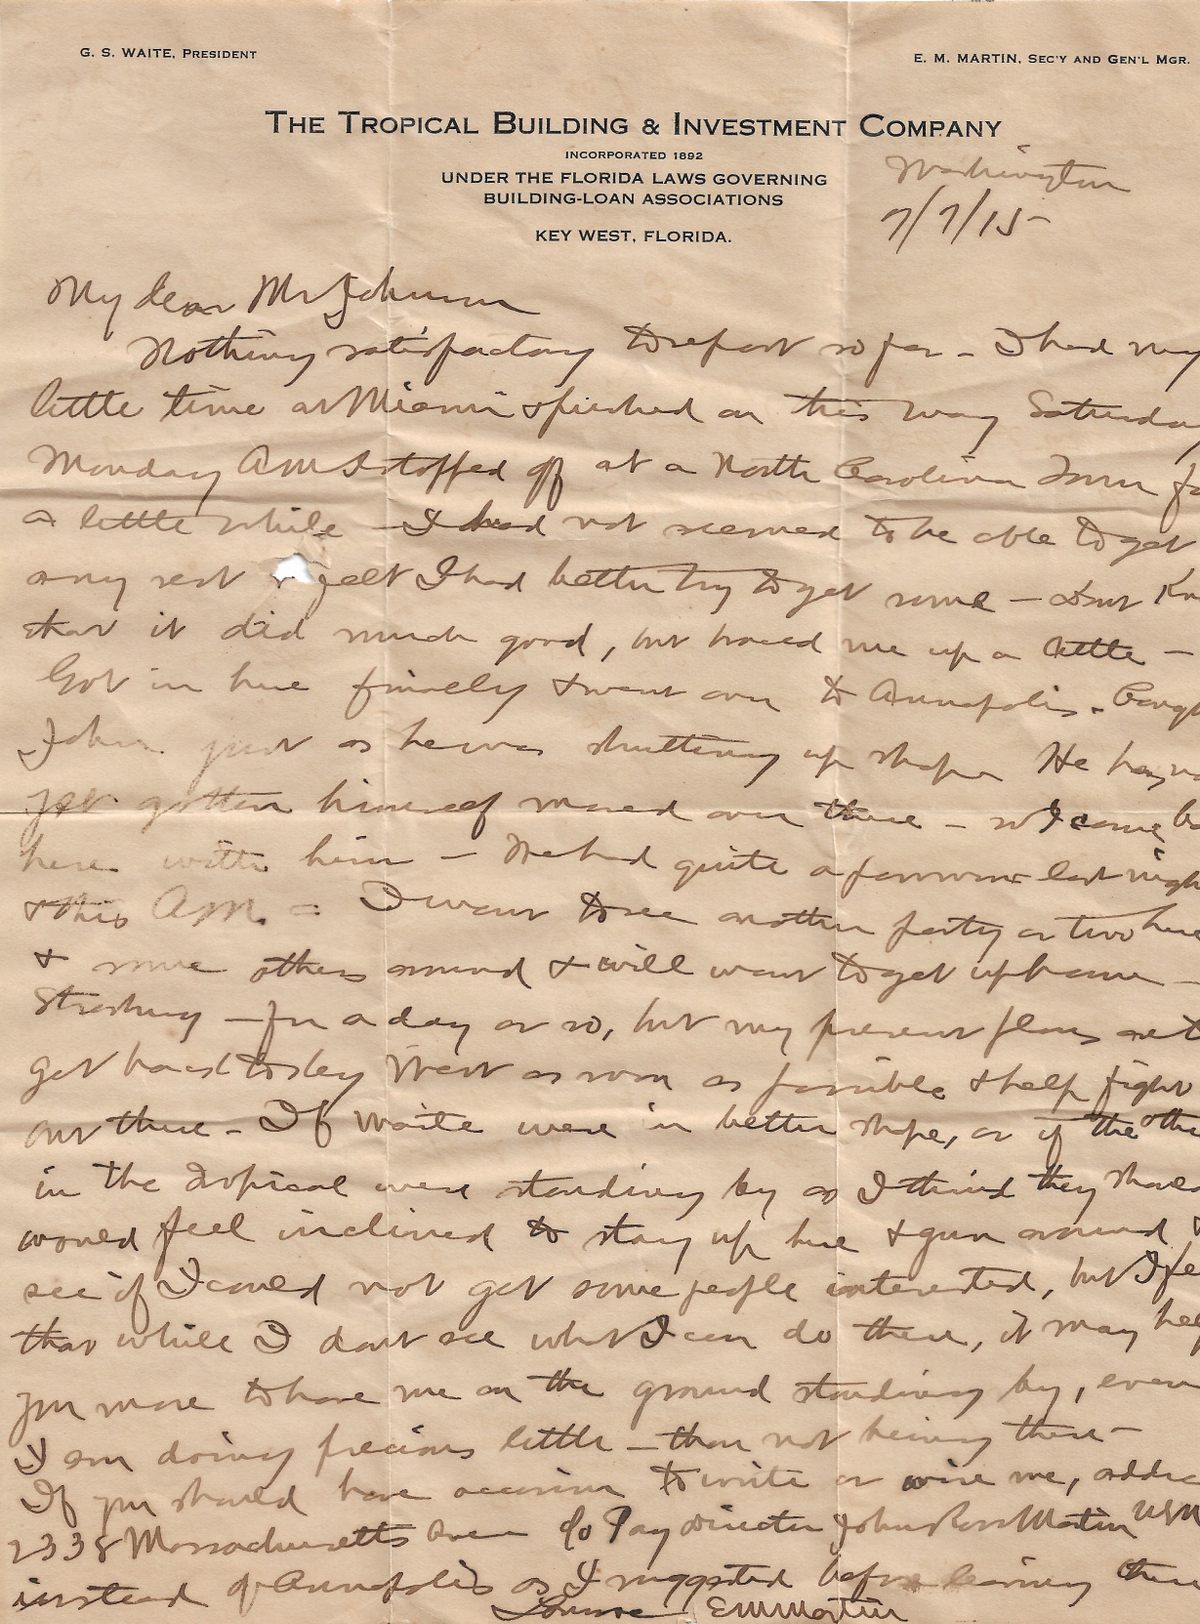 G. S. WAITE, PRESIDENT
E. M. MARTIN, SEC'Y AND GEN'L MGR.
THE TROPICAL BUILDING & INVESTMENT COMPANY
INCORPORATED 1892
UNDER THE FLORIDA LAWS GOVERNING
BUILDING-LOAN ASSOCIATIONS
KEY WEST, FLORIDA.
Washington
7/7/15
My dear Mr Johnson
Nothing satisfactory to report so far - I had my
little time at Miami & pushed on this way Saturday
Monday AM I stopped off at a North Carolina Town fo
a little while - I had not seemed to be able to get
any rest & felt I had better try to get some - dont Kn
that it did much good, but braced me up a little -
Got in here finally & went over to Annapolis. Caugh
John just as he was shutting up shop. He has no
yet gotten himself moved over there - so I came ba
here with him - We had quite a powwow last nigh
& this AM. - I want to see another party or two here
& some others around & will want to get up home -
Strasburg - for a day or so, but my present plans are t
get back to Key West as soon as possible & help fight
out there - If Waite were in better shape, or if the othe
in the Tropical were standing by as I think they shoul
would feel inclined to stay up here & gun around &
see if I could not get some people interested, but I fe
that while I dont see what I can do there, it may hel
you more to have me on the ground standing by, even
I am doing precious little - than not being there -
If you should have occasion to write or wire me, addre
2338 Massachusetts Aven c/o Pay Director John Ross Martin USN
instead of Annapolis as I suggested before leaving there
EMMartin